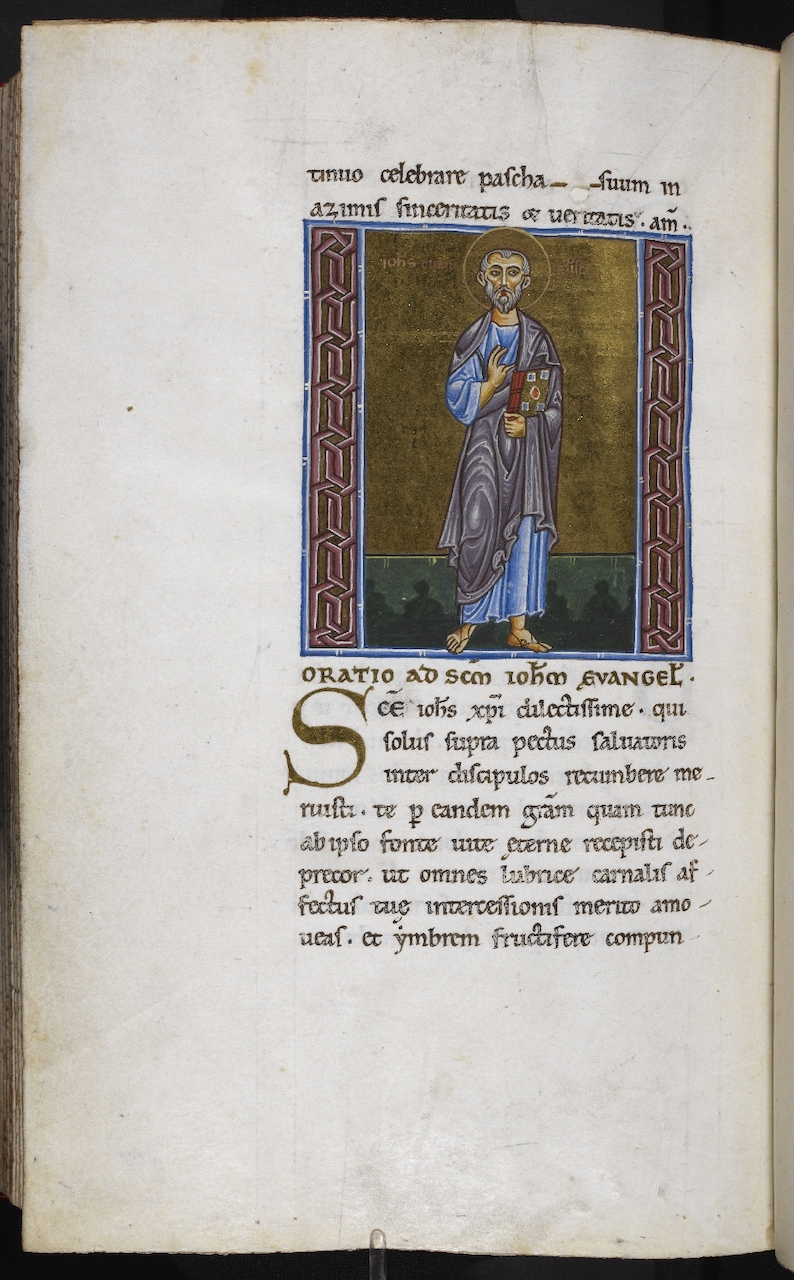 tinuo celebrare pascha suum in
azimis sinceritatis & ueritatis. am̄.
ioħs euan
ORATIO AD SC̄M IOH̄M EVANGEL̄.
SCĒ ioħs xp̄i dilectissime. qui
solus supra pectus saluatoris
inter discipulos recumbere me-
ruisti. te ꝑ eandem grām quam tunc
ab ipso fonte uite ęterne recepisti de-
precor. ut omnes lubrice carnalis af-
fectus tuę intercessionis merito amo-
ueas. et ẏmbrem fructifere compun